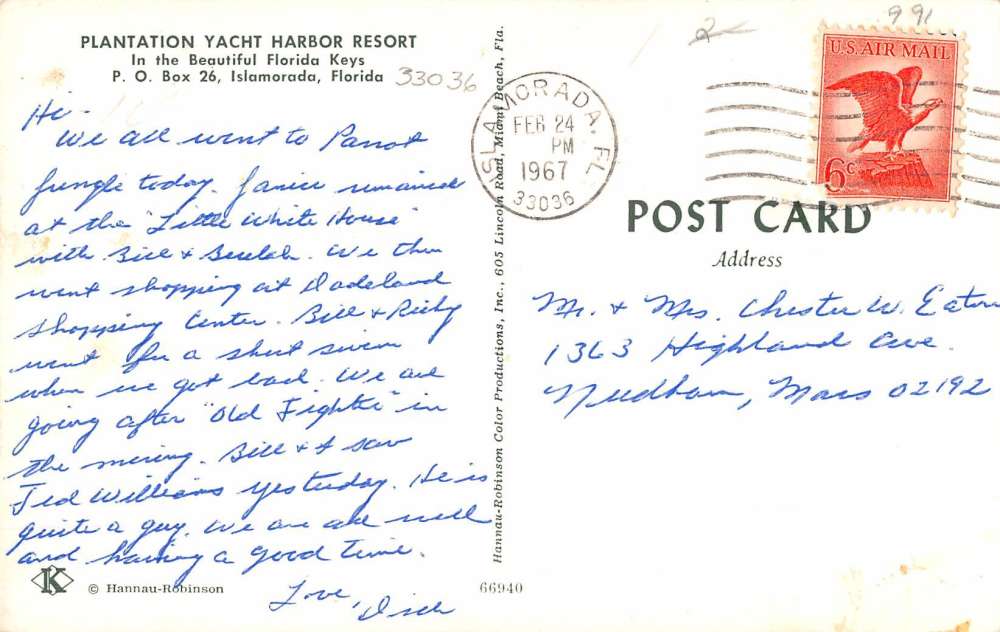 PLANTATION YACHT HARBOR RESORT
In the Beautiful Florida Keys
P. O. Box 26, Islamorada, Florida 33036
Hi-
We all went to Parrot
Jungle today. Janice remained
at the "Little White House"
with Bill & Beulah. We then
went shopping at Dadeland
Shopping Center. Bill & Ricky
went for a short swim
when we got back. We are
going after "Old Fighter" in
the morning. Bill & I saw
Ted Williams yesterday. He is
quite a guy. We are all well
and having a good time.
Love,
Dick
K
© Hannau-Robinson
66940
Hannau-Robinson Color Productions, Inc., 605 Lincoln Road, Miami Beach, Fla.
ISLAMORADA, FL
FEB 24
PM
1967
33036
2
991
U.S. AIR MAIL
6c
POST CARD
Address
Mr. & Mrs. Chester W. Eaton
1363 Highland Ave.
Needham, Mass 02192